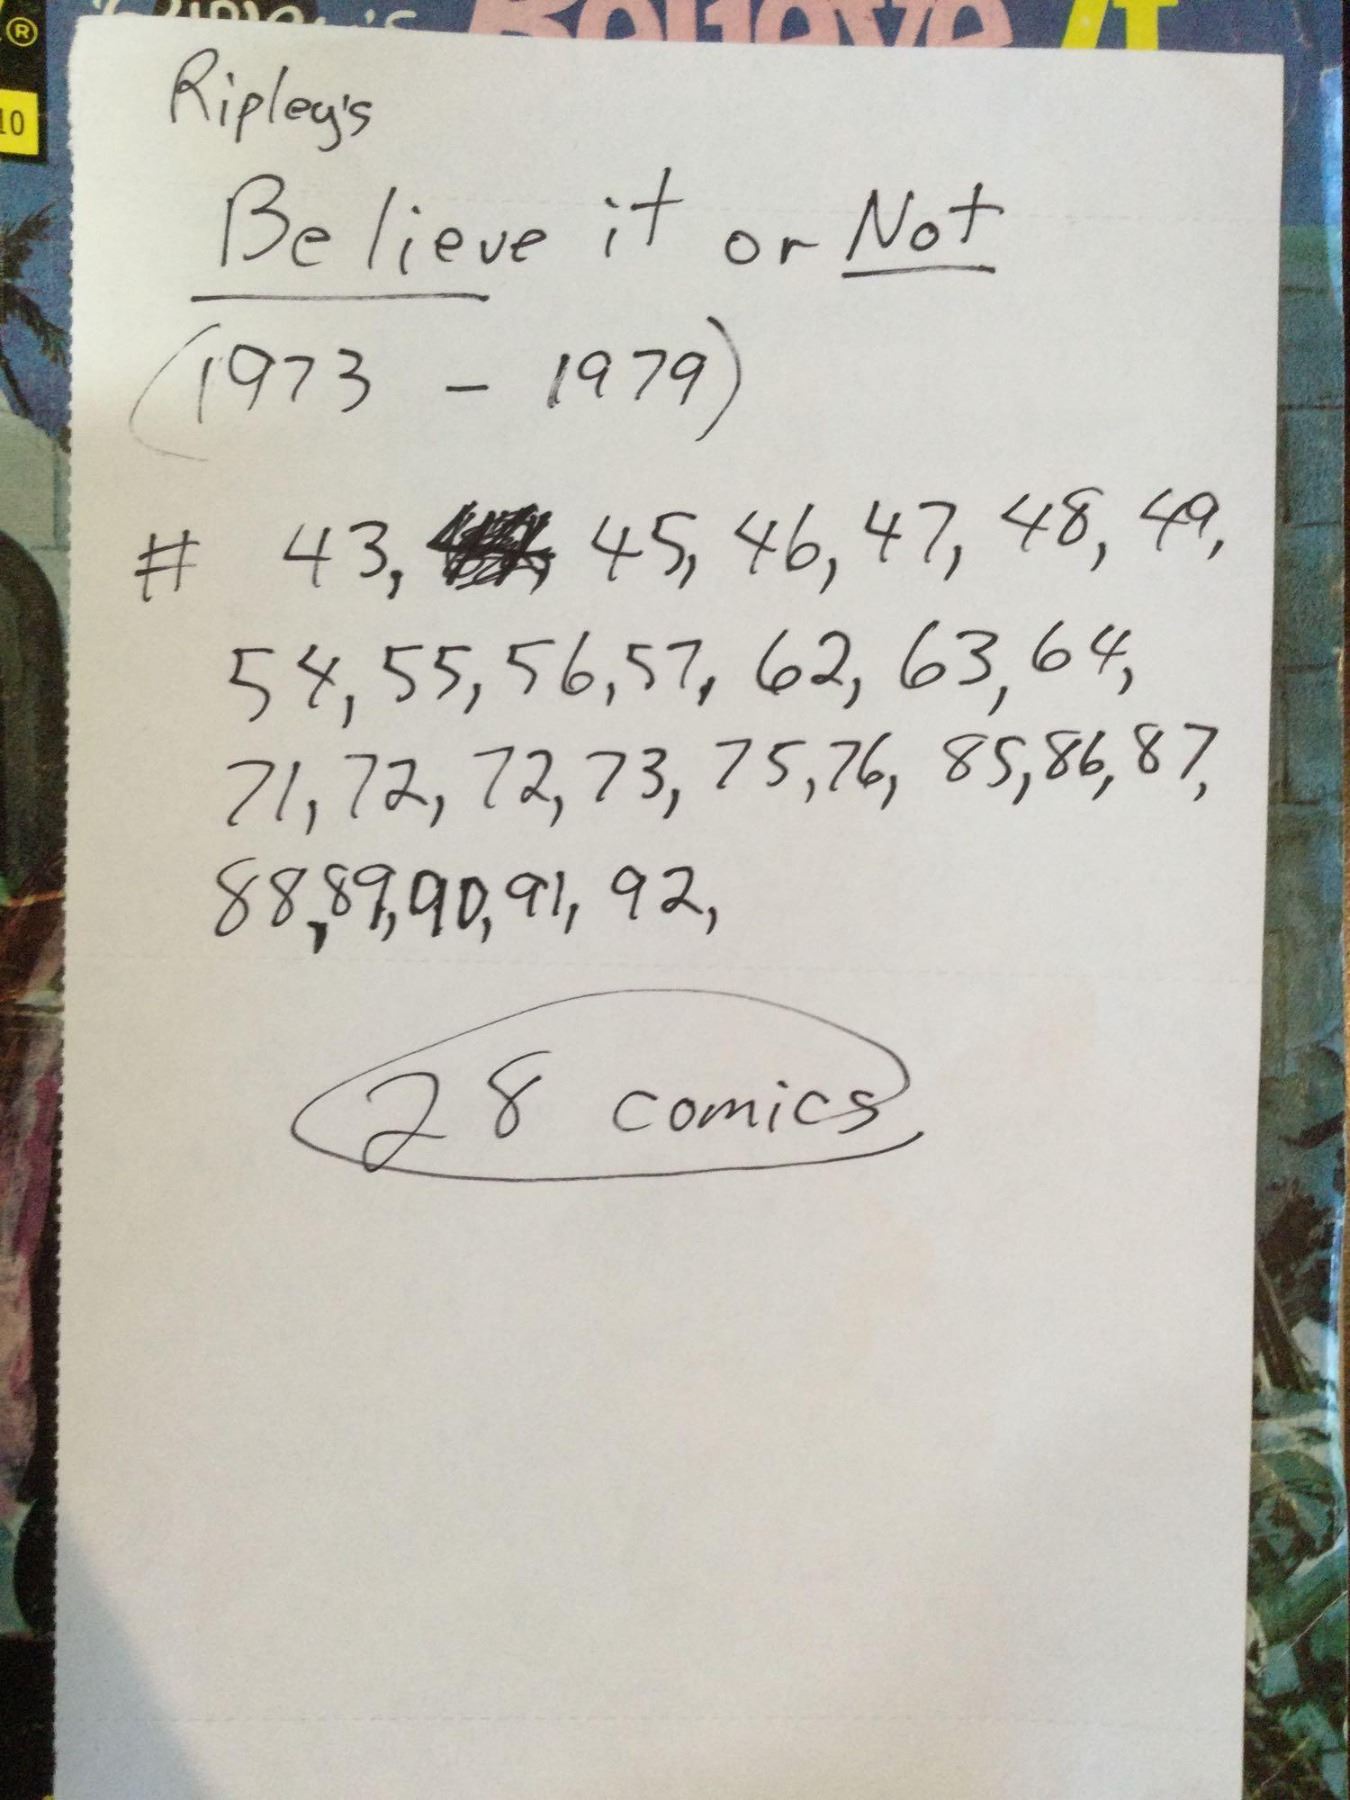 ®
Believe it
10
Ripley's
Believe it or Not
(1973 - 1979)
# 43, 45, 46, 47, 48, 49,
54, 55, 56, 57, 62, 63, 64,
71, 72, 72, 73, 75, 76, 85, 86, 87,
88, 89, 90, 91, 92,
28 comics